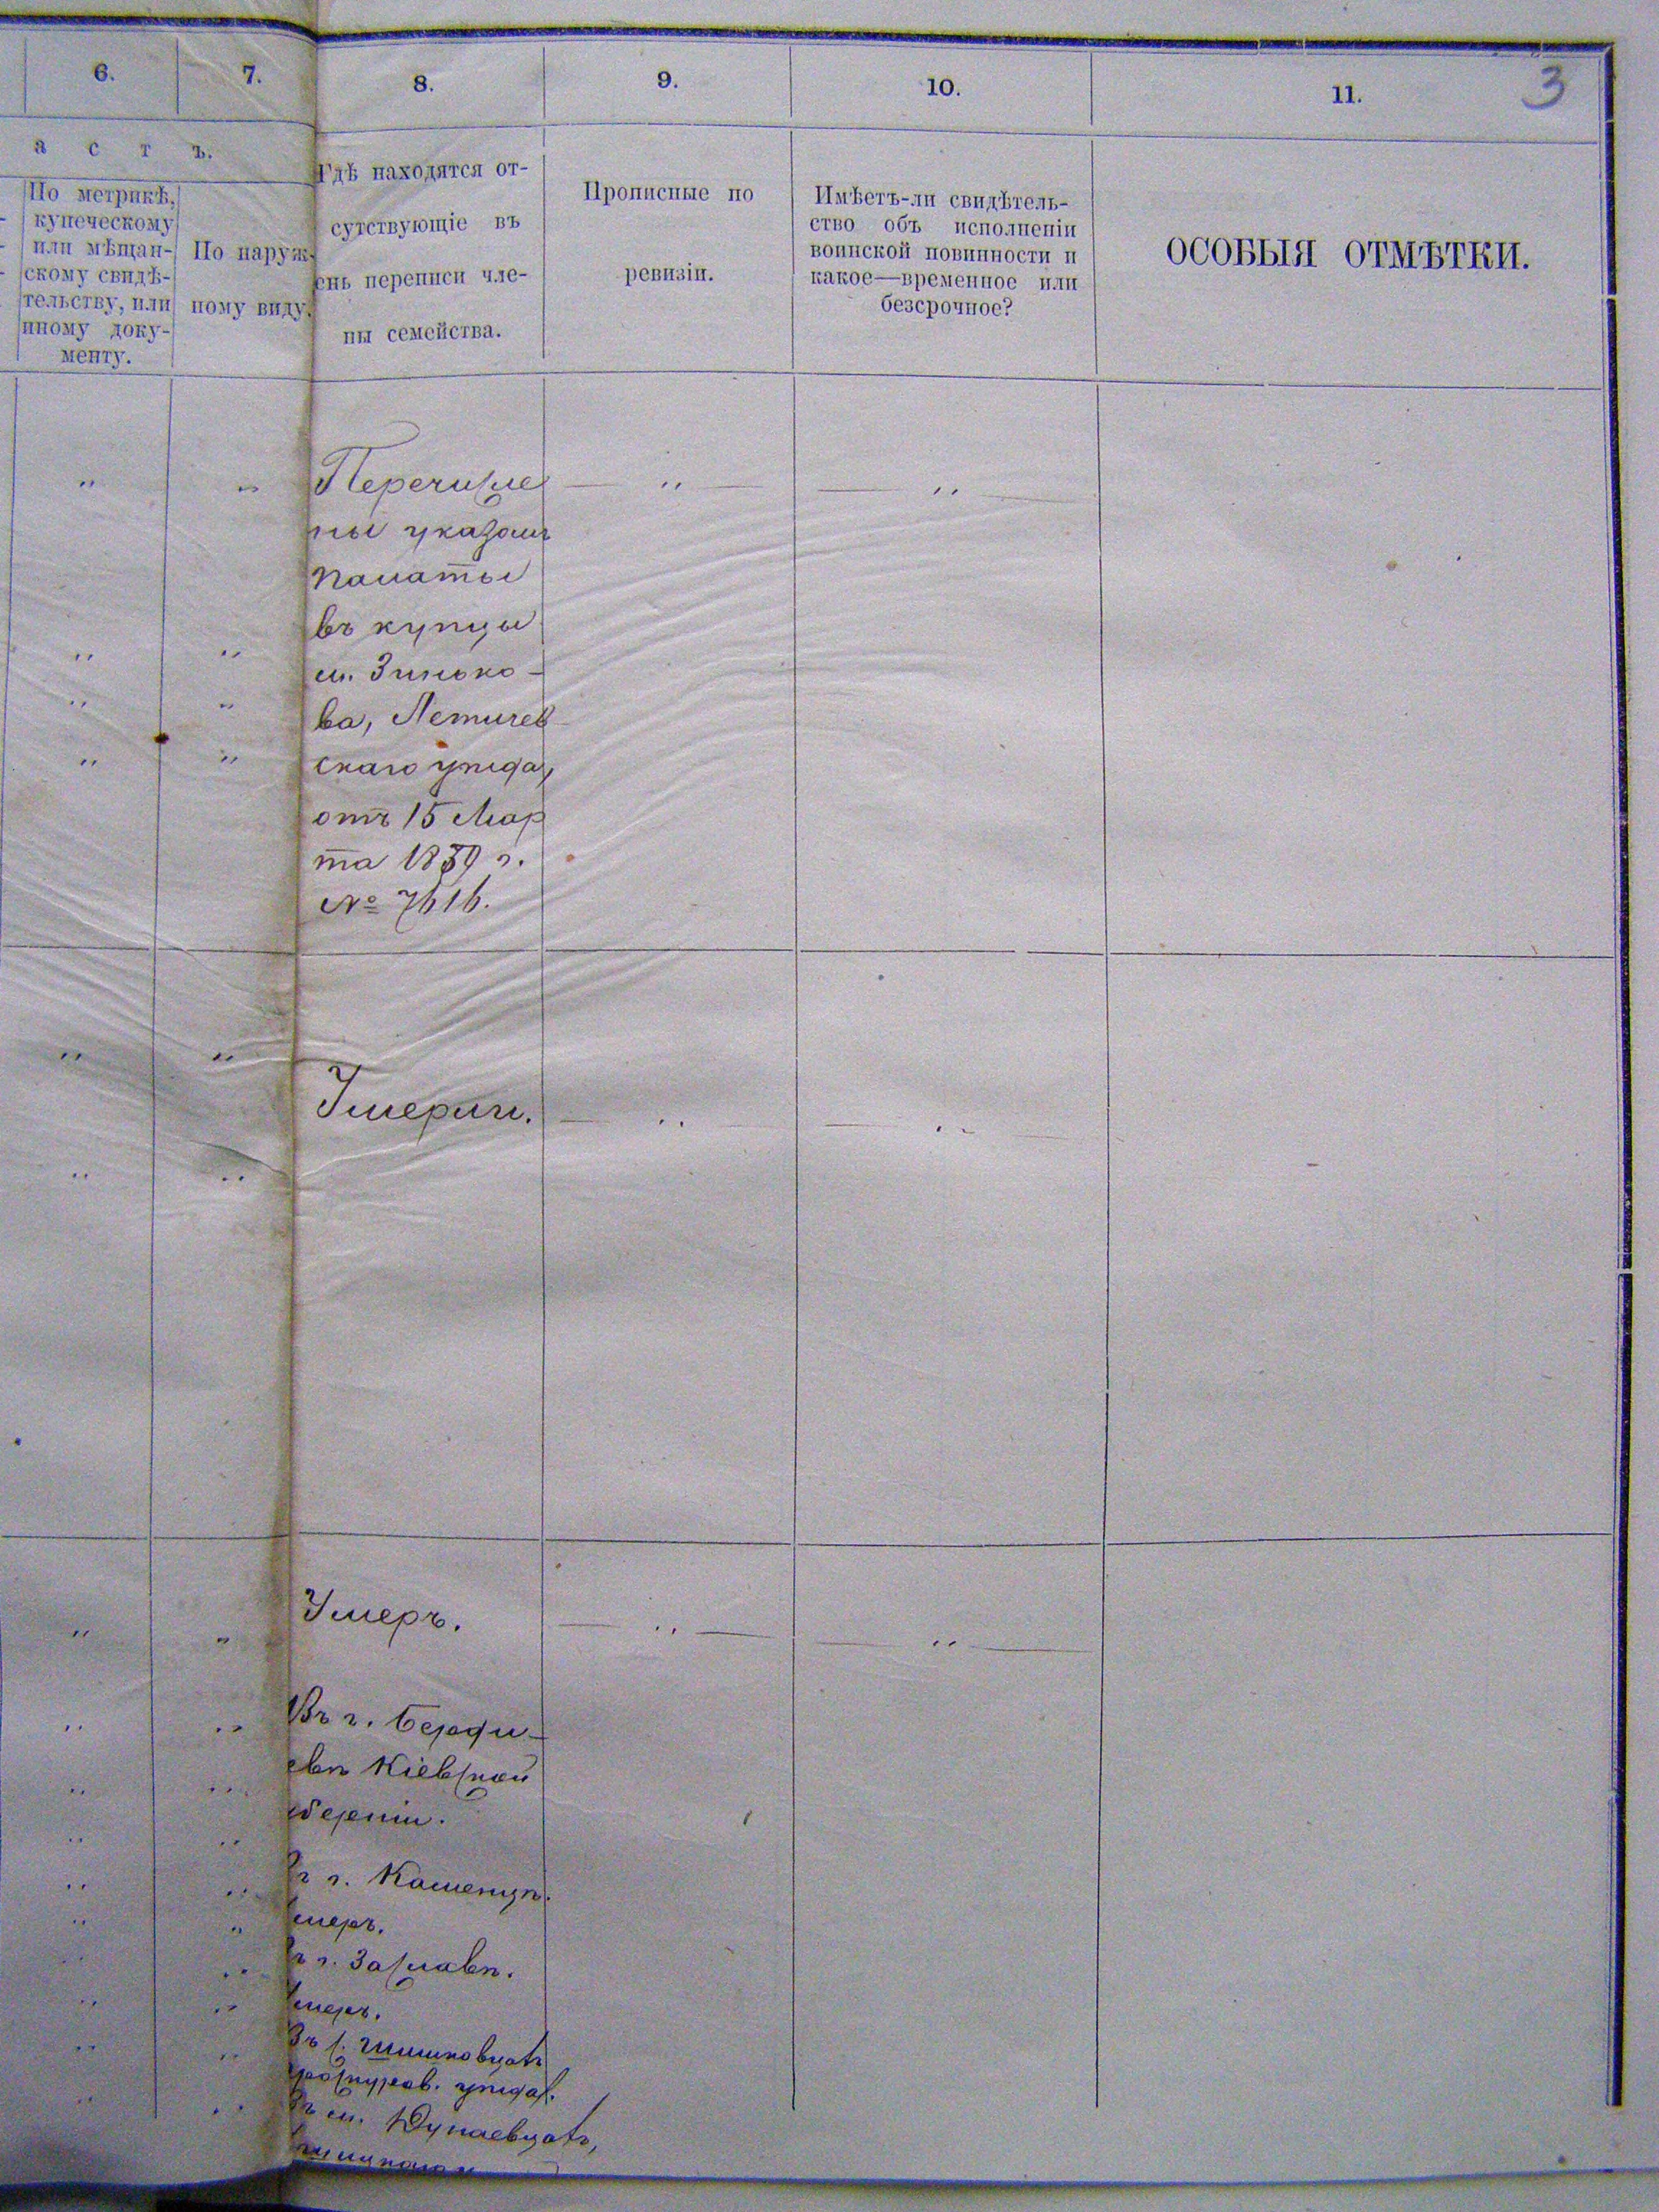 6. 7. 8. 9. 10. 11. 3
а с т ъ.
По метрикѣ,
купеческому
или мѣщан-
скому свидѣ-
тельству, или
иному доку-
менту.
По наруж-
ному виду.
Гдѣ находятся от-
сутствующіе въ
ень переписи чле-
ны семейства.
Прописные по
ревизіи.
Имѣетъ-ли свидѣтель-
ство объ исполненіи
воинской повинности и
какое—временное или
безсрочное?
ОСОБЫЯ ОТМѢТКИ.
Перечисле
ны указомъ
Палаты
въ купцы
м. Зинько-
ва, Летичев-
скаго уѣзда,
отъ 15 Мар
та 1839 г.
№ 7616.
Умерли.
Умеръ.
Въ г. Берди-
евѣ Кіевской
берніи.
ъ г. Каменцѣ.
меръ.
ъ г. Заславѣ.
меръ.
Въ с.
уѣзда.
ъ м. Дунаевцахъ,